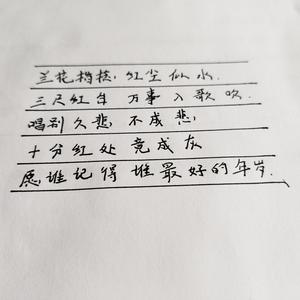 兰花指捻红尘似水
三尺红台 万事入歌吹
唱别久悲不成悲
十分红处竟成灰
愿谁记得谁最好的年岁